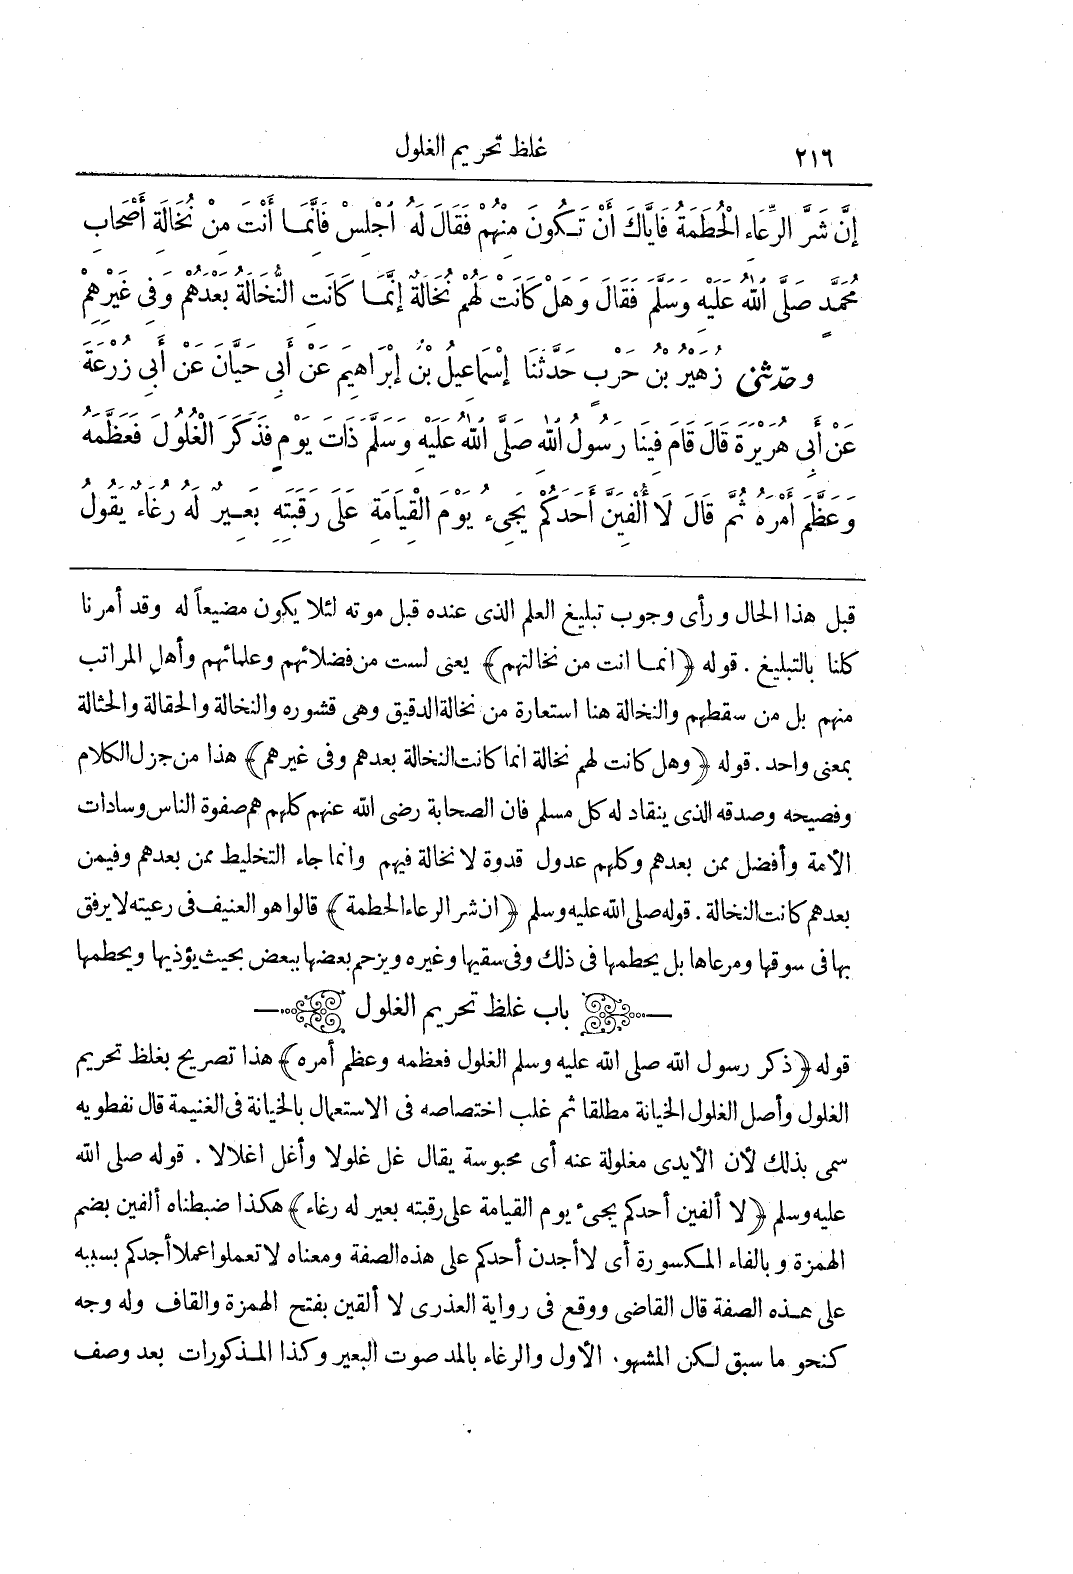 ٢١٦ غلظ تحريم الغلول
إِنَّ شَرَّ الرِّعَاءِ الْحُطَمَةُ فَإِيَّاكَ أَنْ تَكُونَ مِنْهُمْ فَقَالَ لَهُ اجْلِسْ فَإِنَّمَا أَنْتَ مِنْ نُخَالَةِ أَصْحَابِ
مُحَمَّدٍ صَلَّى اللهُ عَلَيْهِ وَسَلَّمَ فَقَالَ وَهَلْ كَانَتْ لَهُمْ نُخَالَةٌ إِنَّمَا كَانَتِ النُّخَالَةُ بَعْدَهُمْ وَفِي غَيْرِهِمْ
وحدثنى زُهَيْرُ بْنُ حَرْبٍ حَدَّثَنَا إِسْمَاعِيلُ بْنُ إِبْرَاهِيمَ عَنْ أَبِي حَيَّانَ عَنْ أَبِي زُرْعَةَ
عَنْ أَبِي هُرَيْرَةَ قَالَ قَامَ فِينَا رَسُولُ اللهِ صَلَّى اللهُ عَلَيْهِ وَسَلَّمَ ذَاتَ يَوْمٍ فَذَكَرَ الْغُلُولَ فَعَظَّمَهُ
وَعَظَّمَ أَمْرَهُ ثُمَّ قَالَ لَا أُلْفِيَنَّ أَحَدَكُمْ يَجِيءُ يَوْمَ الْقِيَامَةِ عَلَى رَقَبَتِهِ بَعِيرٌ لَهُ رُغَاءٌ يَقُولُ
قبل هذا الحال ورأى وجوب تبليغ العلم الذى عنده قبل موته لئلا يكون مضيعاً له وقد أمرنا
كلنا بالتبليغ . قوله ﴿انما انت من نخالتهم﴾ يعنى لست من فضلائهم وعلمائهم وأهل المراتب
منهم بل من سقطهم والنخالة هنا استعارة من نخالة الدقيق وهى قشوره والنخالة والحقالة والحثالة
بمعنى واحد . قوله ﴿وهل كانت لهم نخالة انما كانت النخالة بعدهم وفى غيرهم﴾ هذا من جزل الكلام
وفصيحه وصدقه الذى ينقاد له كل مسلم فان الصحابة رضى الله عنهم كلهم هم صفوة الناس وسادات
الأمة وأفضل ممن بعدهم وكلهم عدول قدوة لا نخالة فيهم وانما جاء التخليط ممن بعدهم وفيمن
بعدهم كانت النخالة . قوله صلى الله عليه وسلم ﴿ان شر الرعاء الحطمة﴾ قالوا هو العنيف فى رعيته لا يرفق
بها فى سوقها ومرعاها بل يحطمها فى ذلك وفى سقيها وغيره ويزحم بعضها ببعض بحيث يؤذيها ويحطمها
باب غلظ تحريم الغلول
قوله ﴿ذكر رسول الله صلى الله عليه وسلم الغلول فعظمه وعظم أمره﴾ هذا تصريح بغلظ تحريم
الغلول وأصل الغلول الخيانة مطلقا ثم غلب اختصاصه فى الاستعمال بالخيانة فى الغنيمة قال نفطويه
سمى بذلك لأن الأيدى مغلولة عنه أى محبوسة يقال غل غلولا وأغل اغلالا . قوله صلى الله
عليه وسلم ﴿لا ألفين أحدكم يجىء يوم القيامة على رقبته بعير له رغاء﴾ هكذا ضبطناه ألفين بضم
الهمزة وبالفاء المكسورة أى لا أجدن أحدكم على هذه الصفة ومعناه لا تعملوا عملا أجدكم بسببه
على هذه الصفة قال القاضى ووقع فى رواية العذرى لا ألقين بفتح الهمزة والقاف وله وجه
كنحو ما سبق لكن المشهور الأول والرغاء بالمد صوت البعير وكذا المذكورات بعد وصف